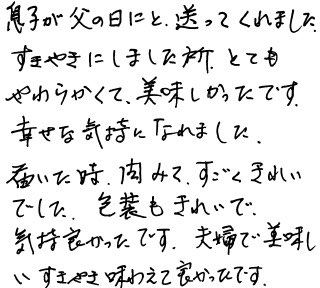 息子が父の日にと、送ってくれました。
すきやきにしました所、とても
やわらかくて、美味しかったです。
幸せな気持になれました。
届いた時、肉みて、すごくきれい
でした。包装もきれいで、
気持良かったです。夫婦で美味し
いすきやき味わえて良かったです。